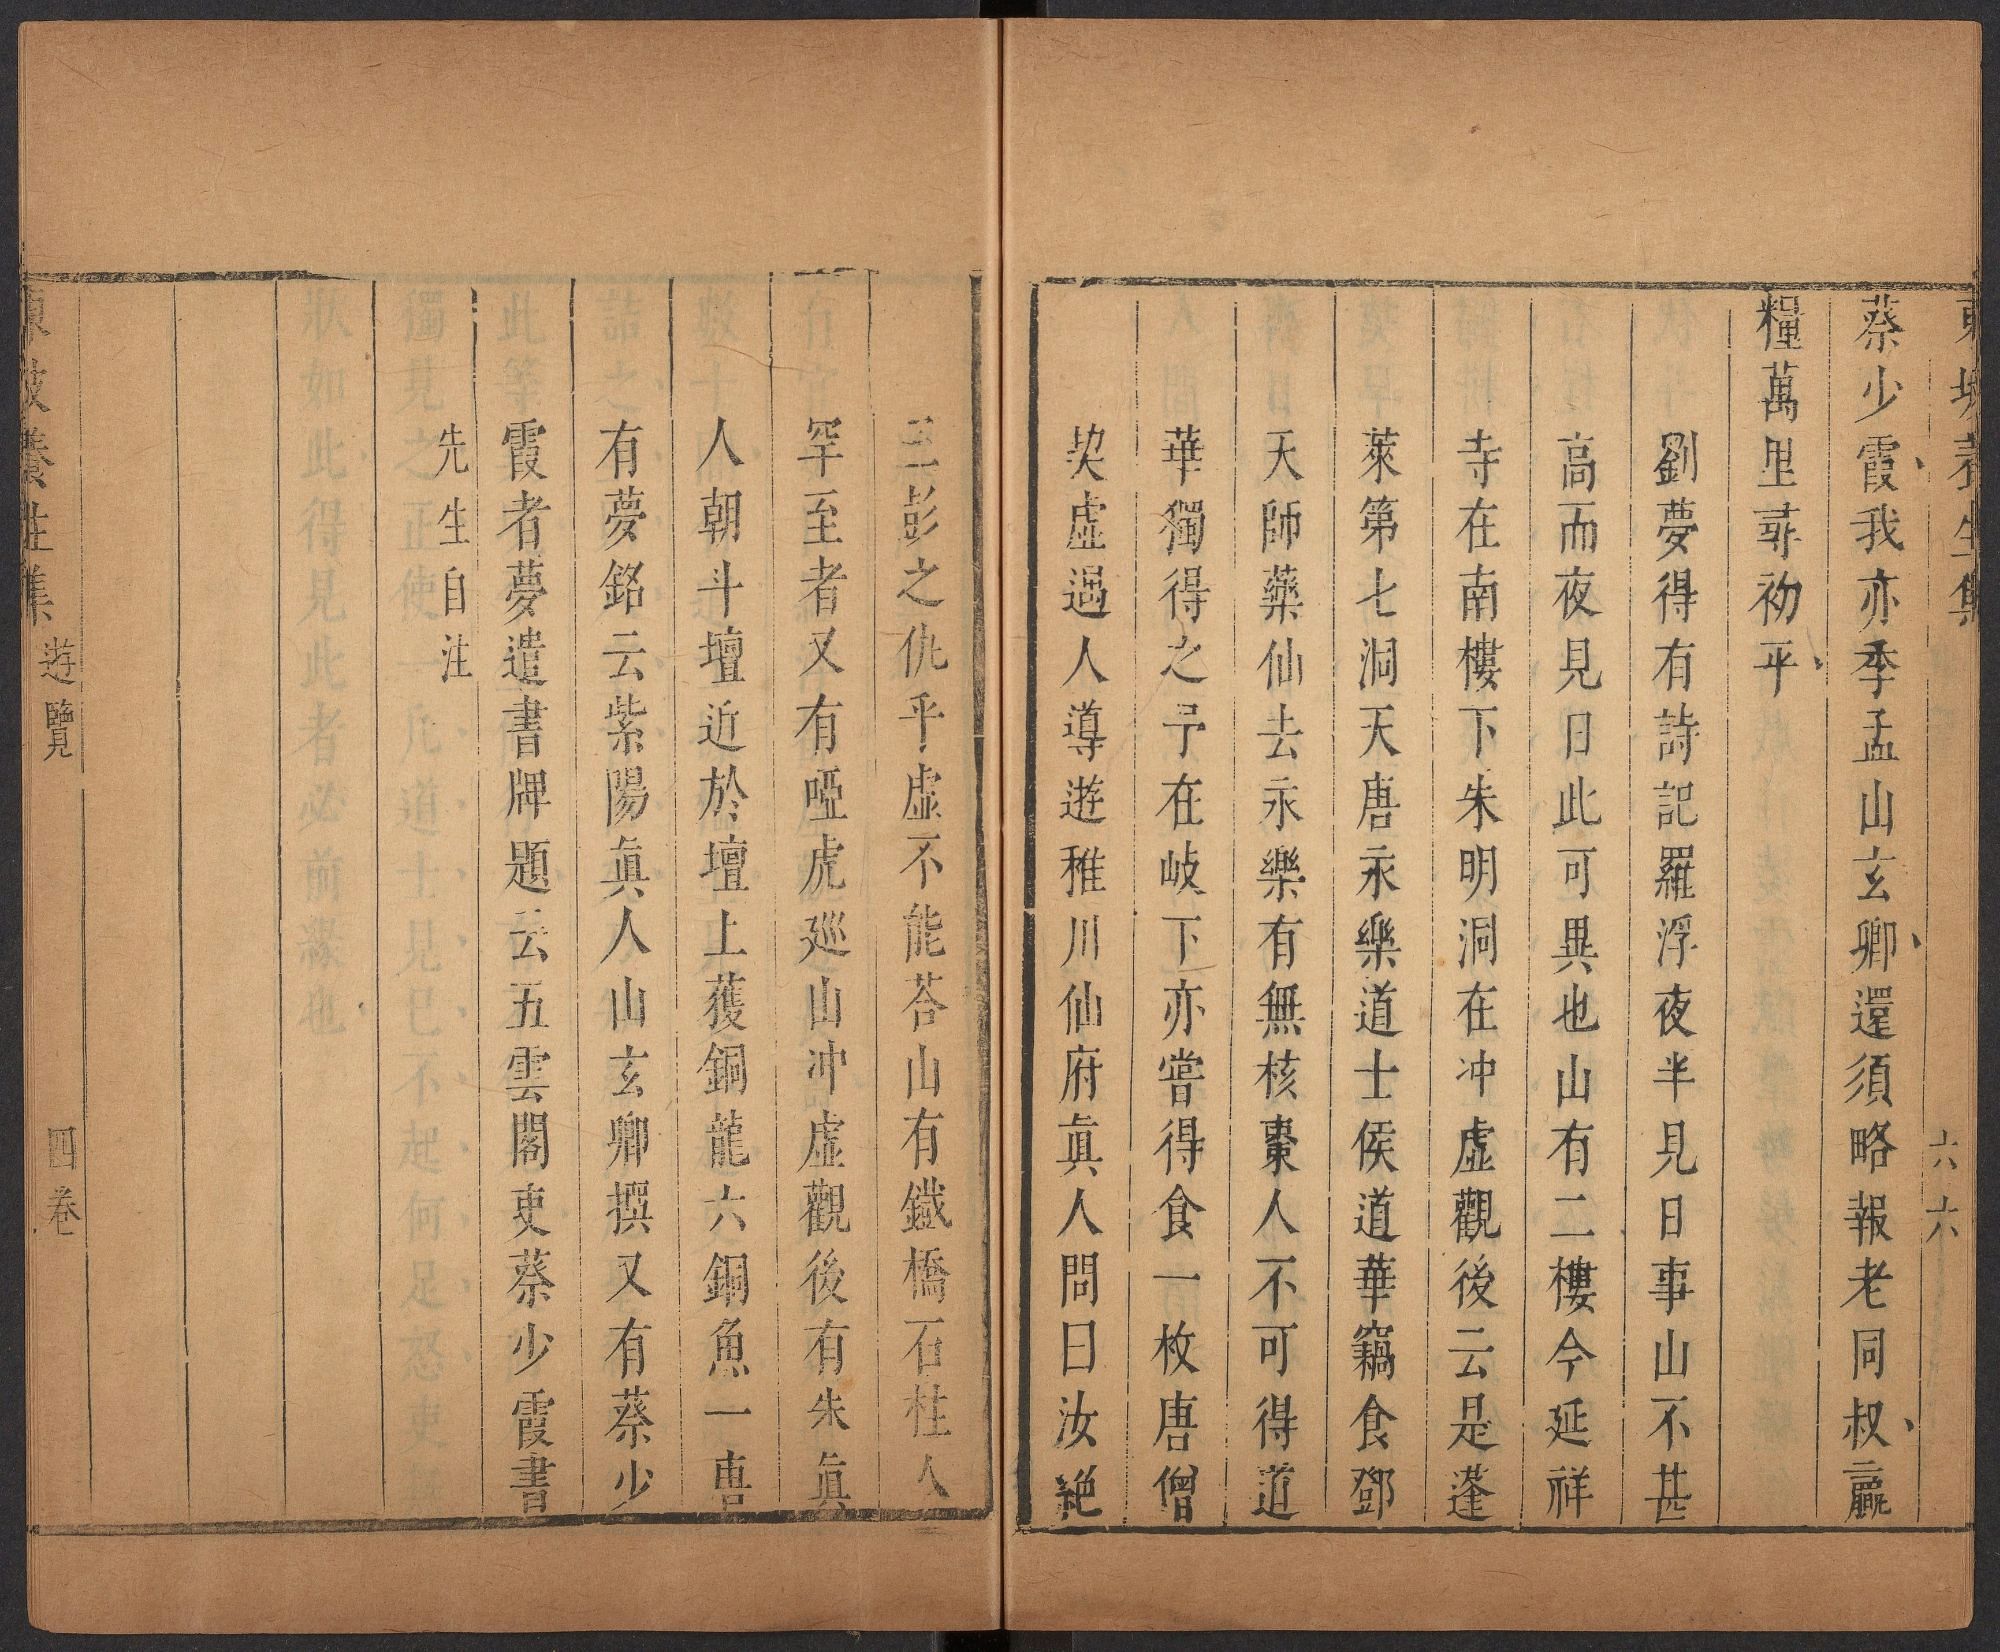 東坡養生集
六六
蔡少霞我亦季孟山玄卿還須略報老同叔贏
糧萬里尋初平
劉夢得有詩記羅浮夜半見日事山不甚
高而夜見日此可異也山有二樓今延祥
寺在南樓下朱明洞在冲虛觀後云是蓬
萊第七洞天唐永樂道士侯道華竊食鄧
天師藥仙去永樂有無核棗人不可得道
華獨得之予在岐下亦嘗得食一枚唐僧
契虛遇人導遊稚川仙府眞人問曰汝絶
三彭之仇乎虛不能荅山有鐵橋石柱人
罕至者又有啞虎廵山冲虛觀後有朱眞
人朝斗壇近於壇上獲銅龍六銅魚一唐
有夢銘云紫陽眞人山玄卿撰又有蔡少
霞者夢遣書牌題云五雲閣吏蔡少霞書
先生自注
東坡養生集
遊覽
四卷